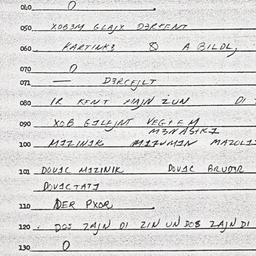 040 0
050 XOBEM GLAJX DERFENT
060 KARTINKE & A BILDL,
070 0
071 — DERCEJLT
080 IR KENT MAJN ZUN DI
090 XOB GELEJNT VEGN EM
MENASIRE
100 MEZINIK MEZUMEN
101 DOVEC MEZINIK DOVEC BRUDER
DOVECTATE
110 DER PXOR
120 DOS ZAJN DI ZIN UN DOS ZAJN DI
130 0